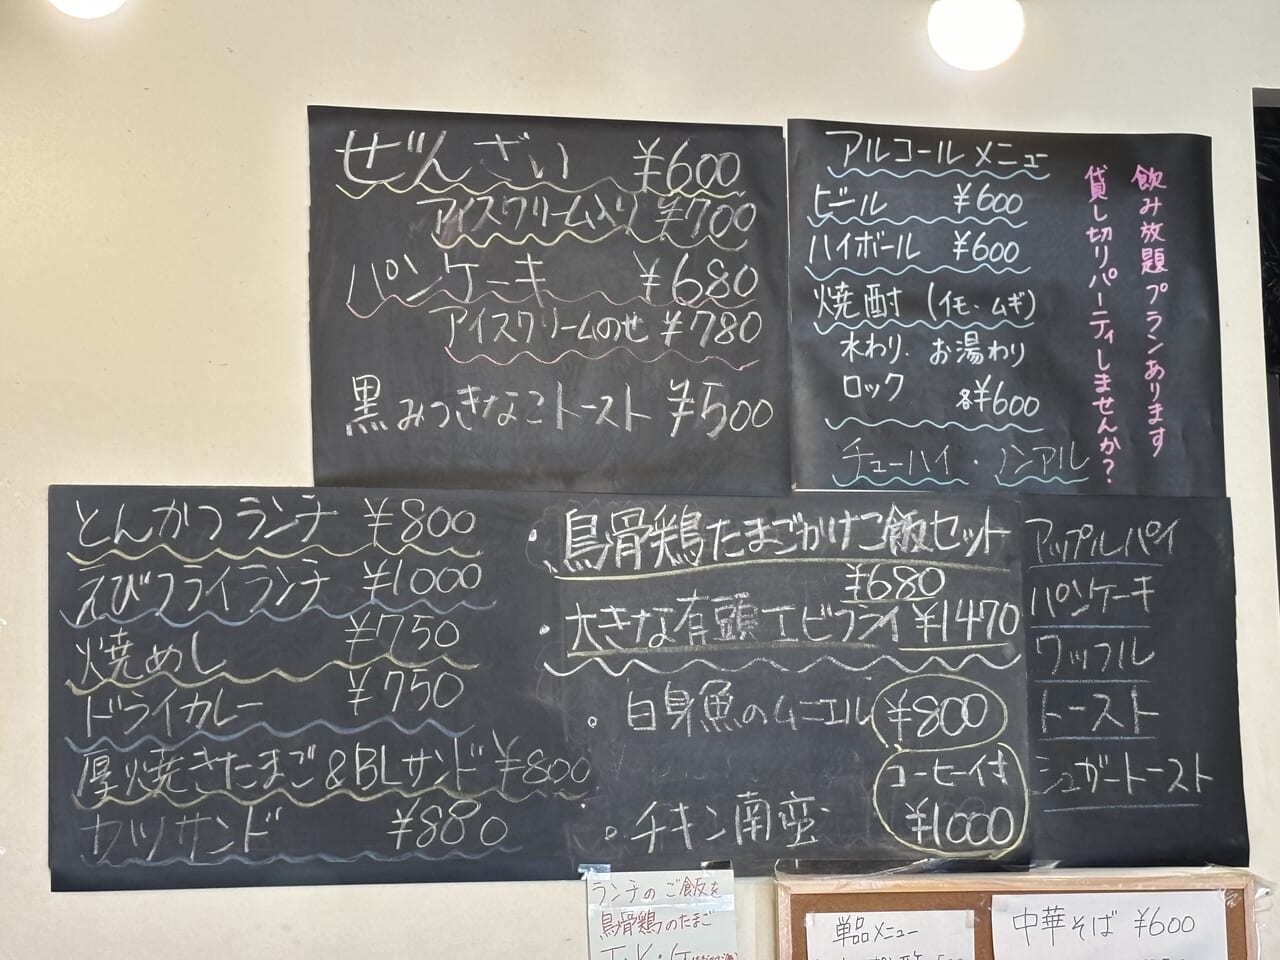 ぜんざい ¥600
アイスクリーム入り ¥700
パンケーキ ¥680
アイスクリームのせ ¥780
黒みつきなこトースト ¥500
アルコールメニュー
ビール ¥600
ハイボール ¥600
焼酎 (イモ・ムギ)
水わり. お湯わり
ロック 各¥600
チューハイ・ノンアル
飲み放題プランあります
貸し切りパーティしませんか?
とんかつランチ ¥800
えびフライランチ ¥1000
焼めし ¥750
ドライカレー ¥750
厚焼きたまご&BLサンド ¥800
カツサンド ¥880
・烏骨鶏たまごかけご飯セット
¥680
・大きな有頭エビフライ ¥1470
。白身魚のムニエル ¥800
コーヒー付
。チキン南蛮 ¥1000
アップルパイ
パンケーキ
ワッフル
トースト
シュガートースト
ランチのご飯を
烏骨鶏のたまご
単品メニュー
中華そば ¥600